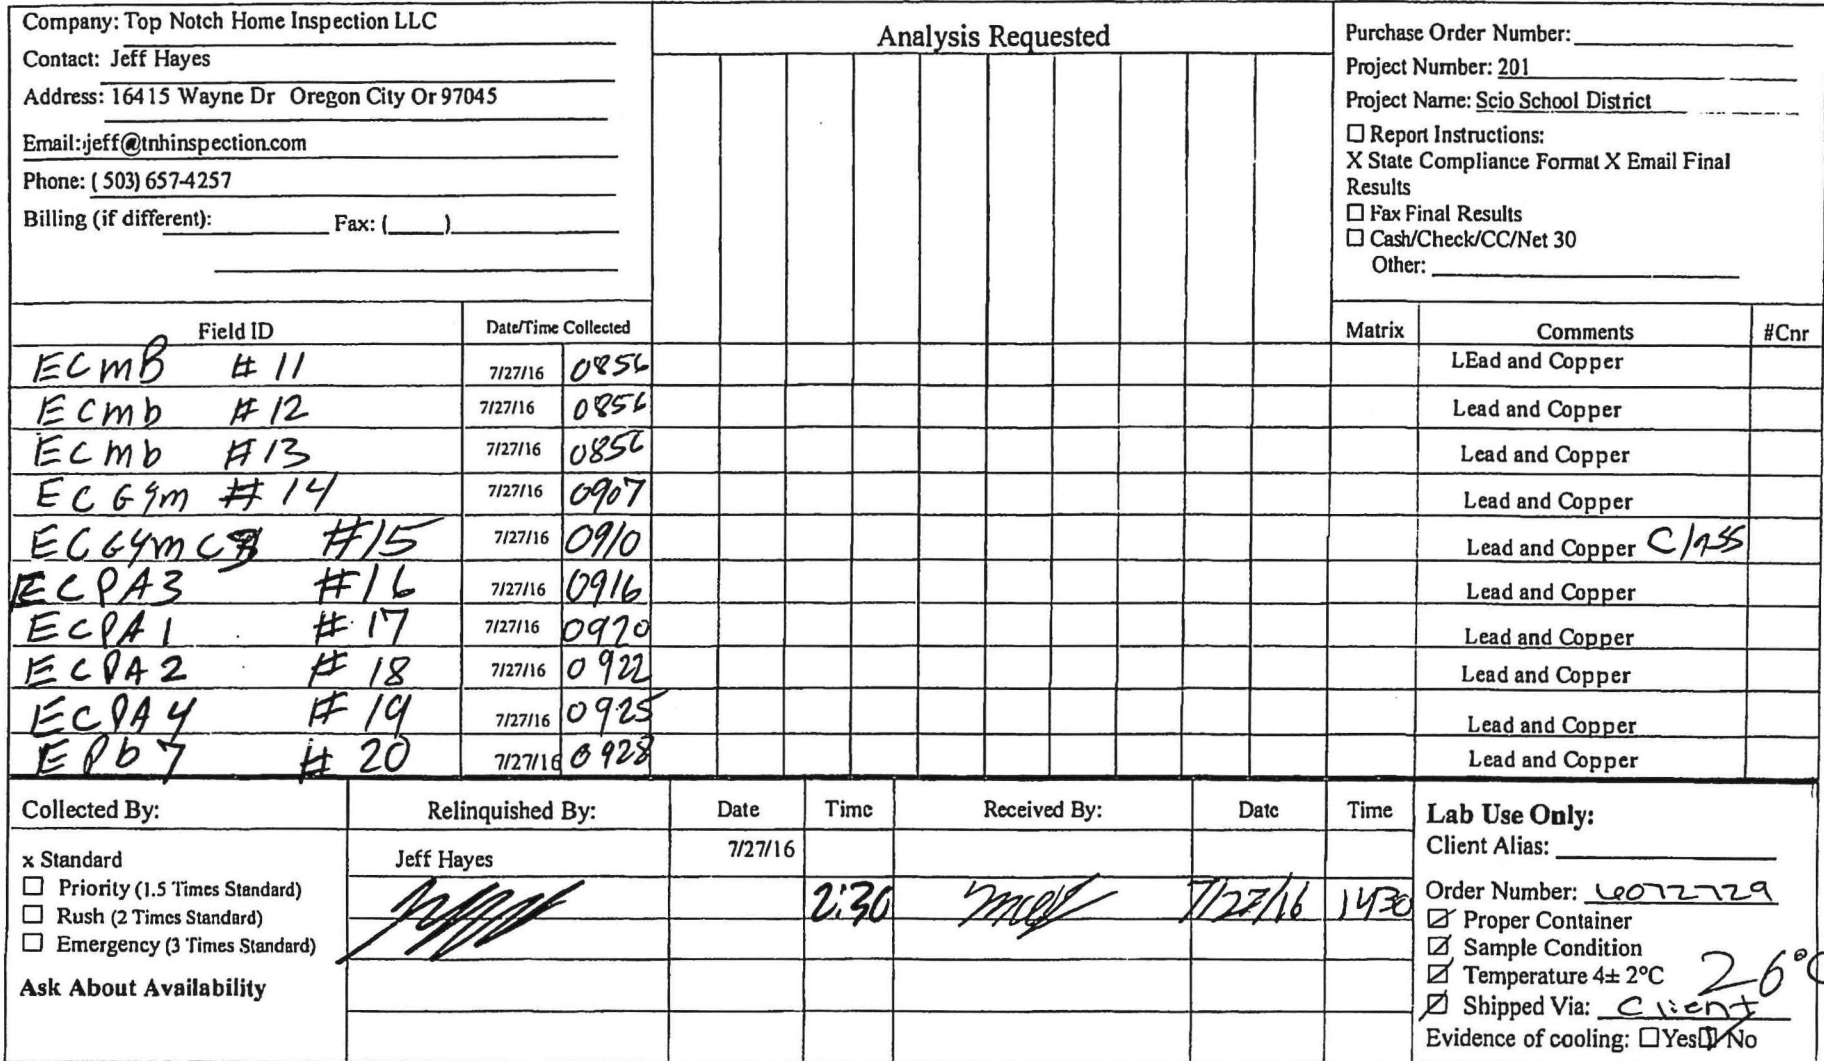 Company: Top Notch Home Inspection LLC
Contact: Jeff Hayes
Address: 16415 Wayne Dr Oregon City Or 97045
Email: jeff@tnhinspection.com
Phone: ( 503) 657-4257
Billing (if different): Fax: ( )
Analysis Requested
Purchase Order Number:
Project Number: 201
Project Name: Scio School District
☐ Report Instructions:
X State Compliance Format X Email Final
Results
☐ Fax Final Results
☐ Cash/Check/CC/Net 30
Other:
Field ID Date/Time Collected Matrix Comments #Cnr
ECmB #11 7/27/16 0856 LEad and Copper
ECmb #12 7/27/16 0856 Lead and Copper
ECmb #13 7/27/16 0856 Lead and Copper
EC Gym #14 7/27/16 0907 Lead and Copper
ECGym #15 7/27/16 0910 Lead and Copper Class
ECPA3 #16 7/27/16 0916 Lead and Copper
ECPA1 #17 7/27/16 0920 Lead and Copper
ECPA2 #18 7/27/16 0922 Lead and Copper
ECPA4 #19 7/27/16 0925 Lead and Copper
EPb7 #20 7/27/16 0928 Lead and Copper
Collected By: Relinquished By: Date Time Received By: Date Time
x Standard
☐ Priority (1.5 Times Standard)
☐ Rush (2 Times Standard)
☐ Emergency (3 Times Standard)
Ask About Availability
Jeff Hayes 7/27/16
2:30 7/27/16 1430
Lab Use Only:
Client Alias:
Order Number: 6072729
☑ Proper Container
☑ Sample Condition
☑ Temperature 4± 2°C 26°C
☑ Shipped Via: Client
Evidence of cooling: ☐Yes ☑No